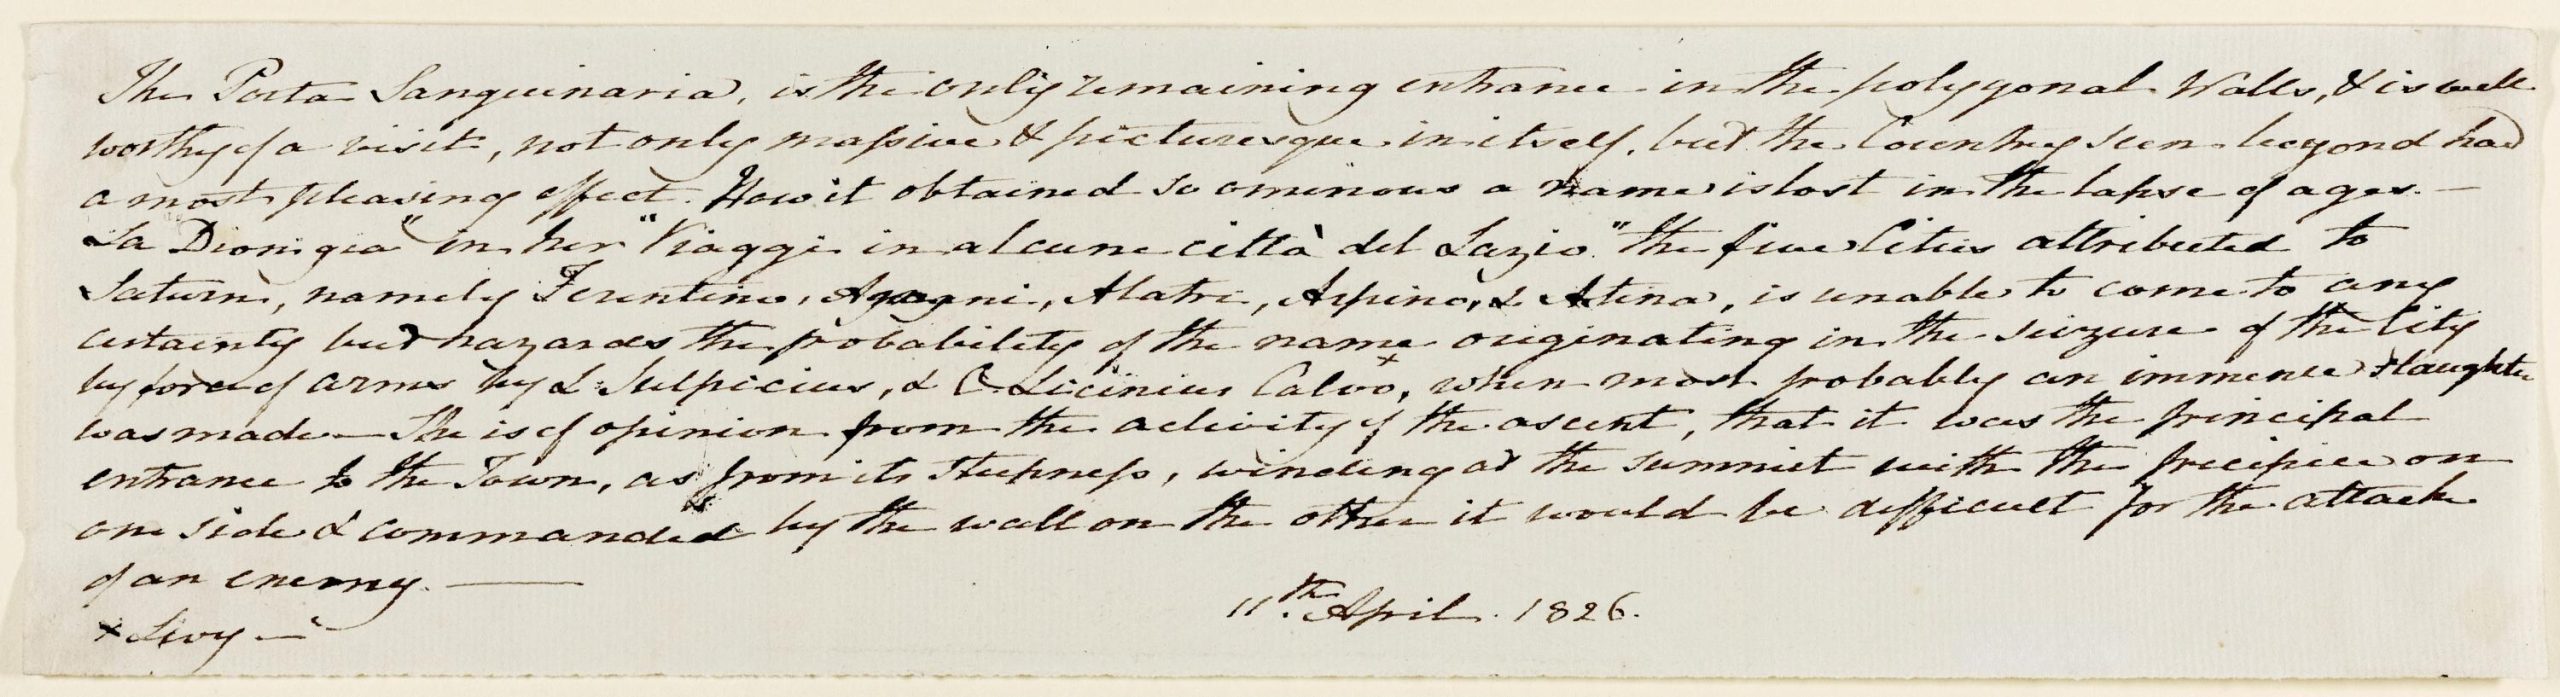 The Porta Sanguinaria, is the only remaining entrance in the polygonal Walls, & is well
worthy of a visit, not only massive & picturesque in itself, but the Country seen beyond had
a most pleasing effect. How it obtained so ominous a name is lost in the lapse of ages. —
La Dionigia" in her "Viaggi in alcune città del Lazio." the five Cities attributed to
Saturn, namely Ferentino, Anagni, Alatri, Arpino, & Atina, is unable to come to any
certainty but hazards the probability of the name originating in the seizure of the City
by force of arms by L. Sulpicius, & C. Licinius Calvo, x when most probably an immense slaughter
was made — She is of opinion from the aclivity of the ascent, that it was the principal
entrance to the Town, as from its steepness, winding at the summit with the precipice on
one side & commanded by the wall on the other it would be difficult for the attack
of an enemy. —
11th. April. 1826.
x Livy —